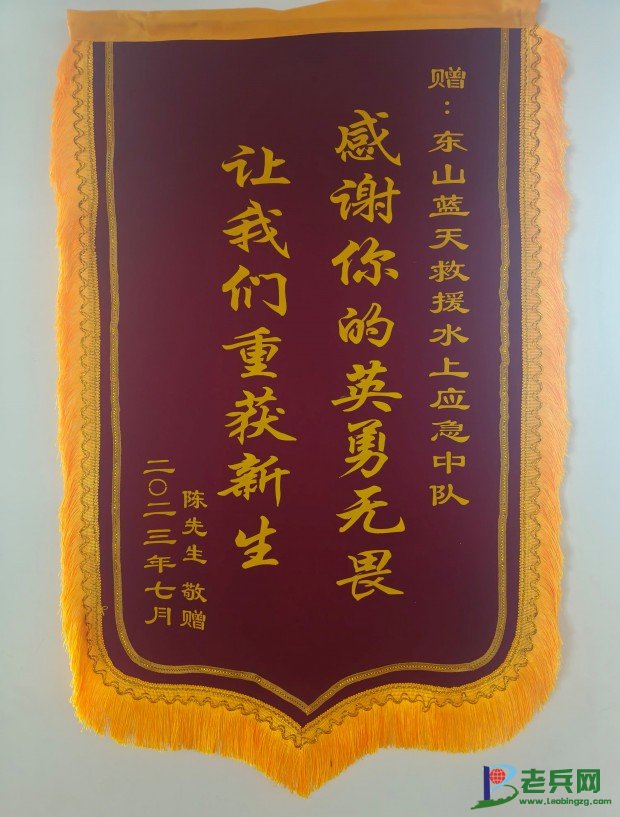 赠：东山蓝天救援水上应急中队
感谢你的英勇无畏
让我们重获新生
陈先生 敬赠
二〇二三年七月
老兵网
www.Laobingzg.com